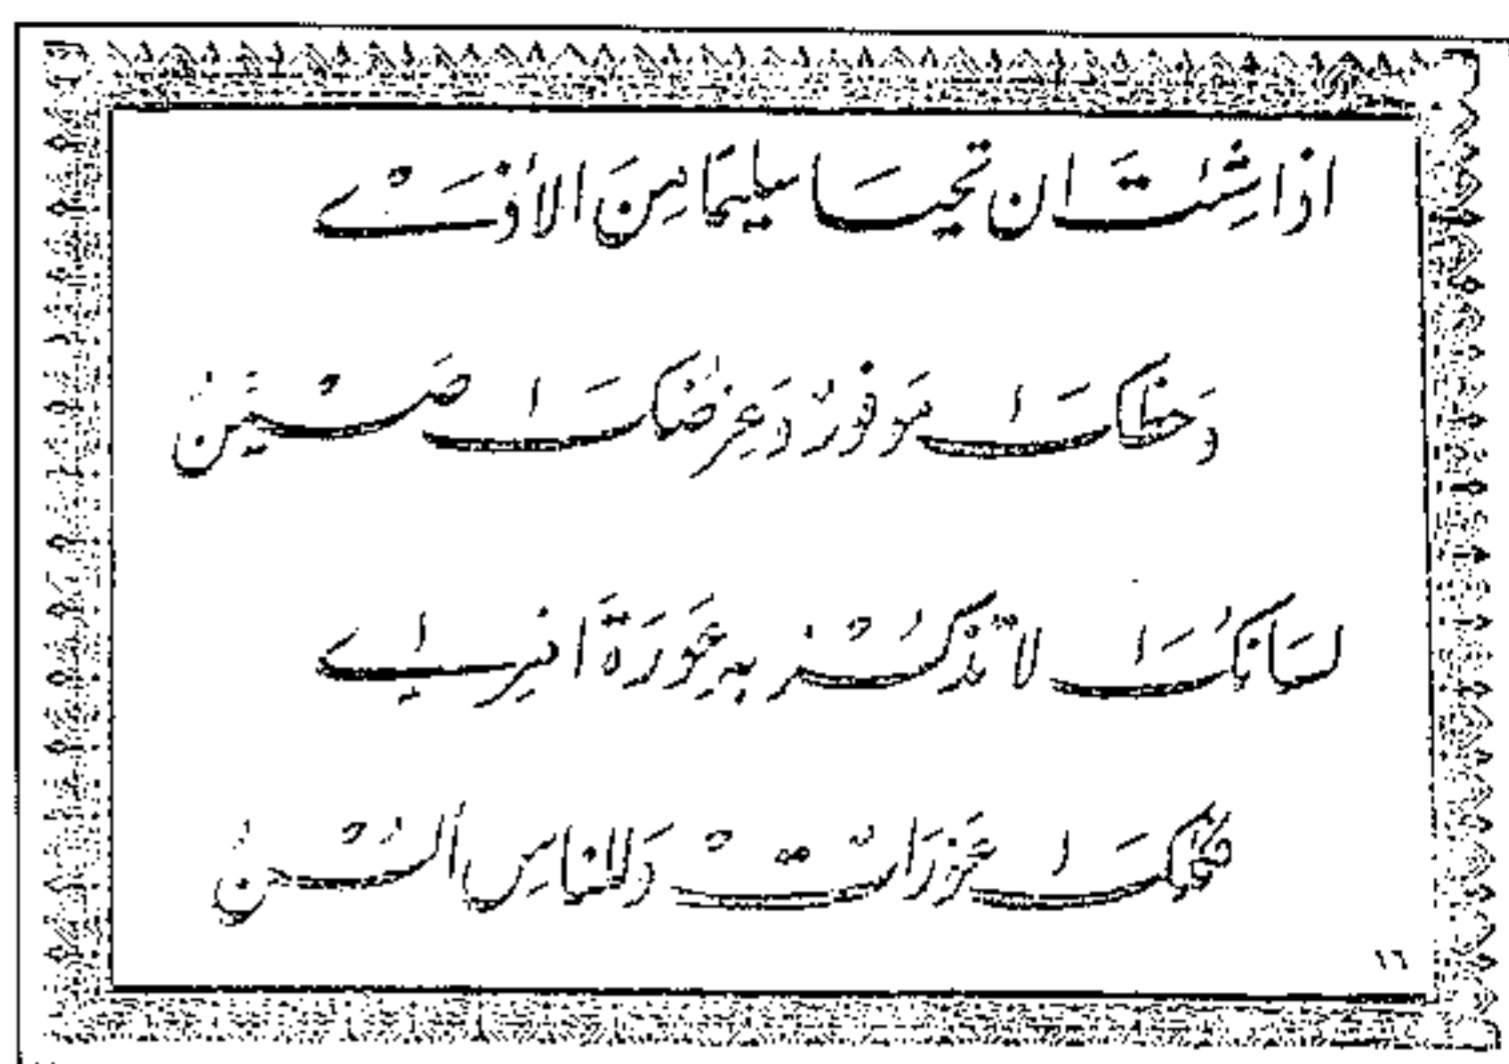 اذا شِئتَ ان تحيَا سليمًا مِنَ الأَذَىْ
وَحظكَ مَوفورٌ وَعِرضكَ صَيْنُ
لسَانكَ لا تذكُرْ بهِ عَوْرَةَ امرِئٍ
فكلكَ عَوْرَاتٌ وَللناسِ ألسُنُ
١٦